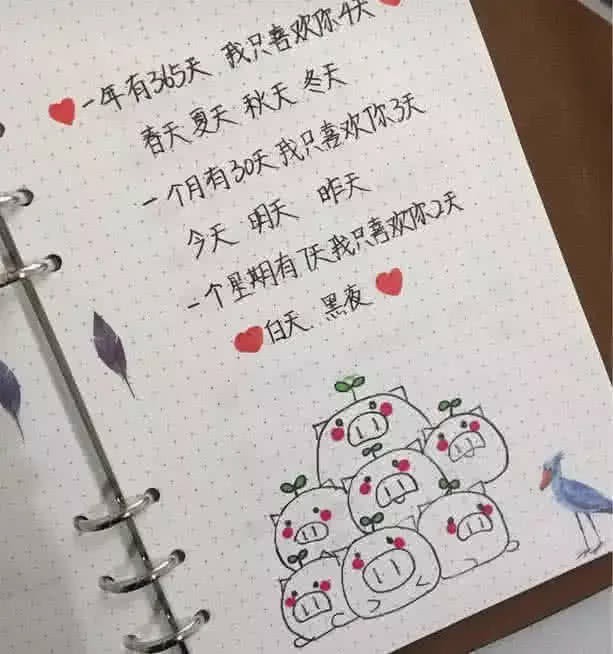 一年有365天 我只喜欢你4天
春天 夏天 秋天 冬天
一个月有30天 我只喜欢你3天
今天 明天 昨天
一个星期有7天 我只喜欢你2天
白天、黑夜